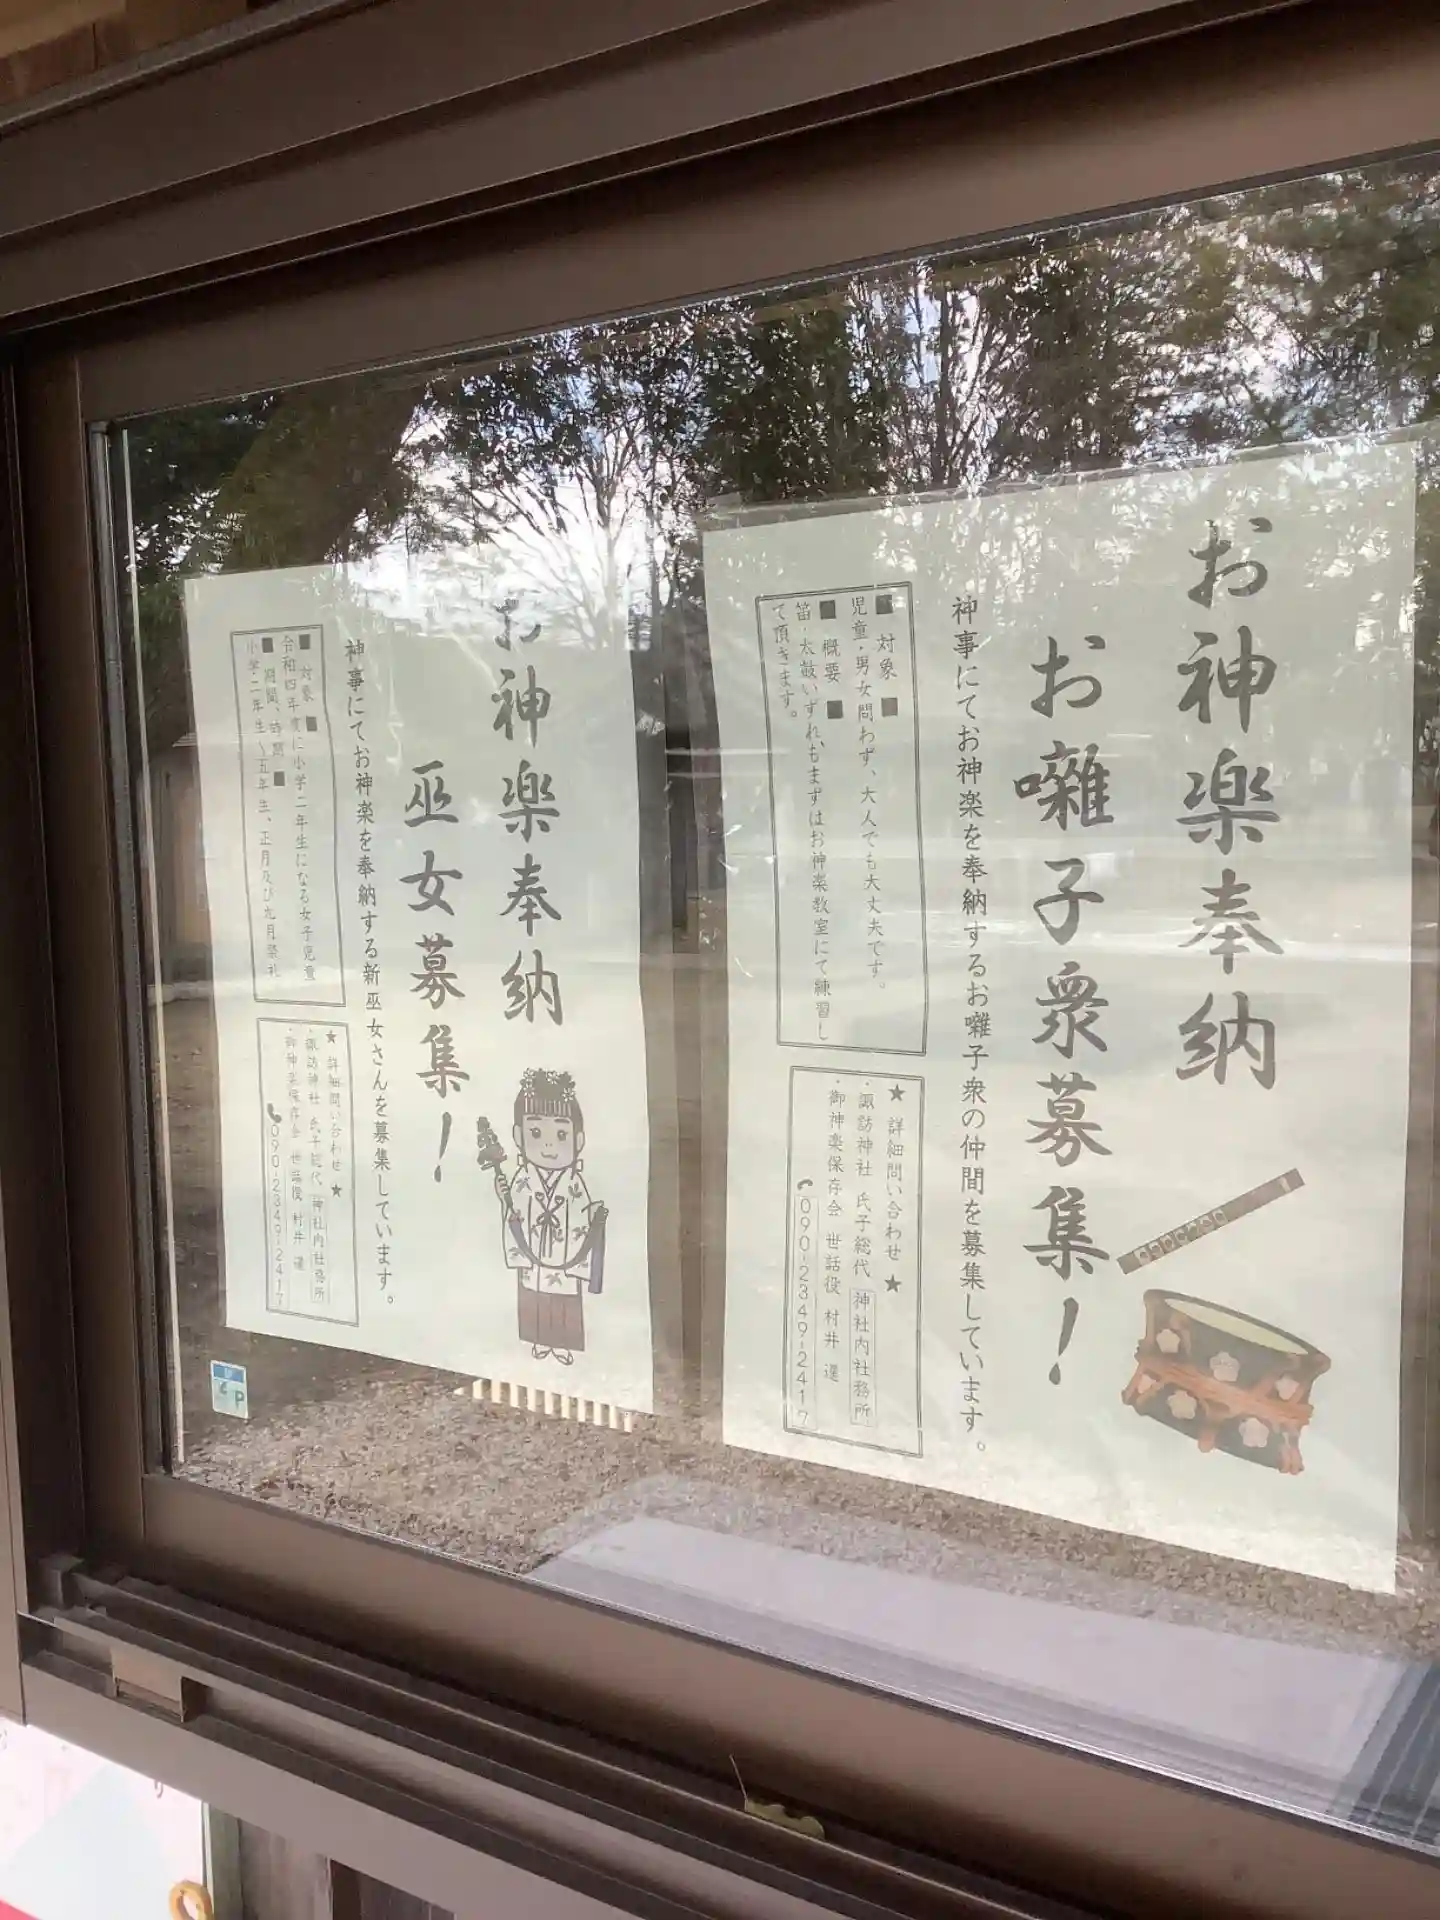 お神楽奉納
お囃子衆募集！
神事にてお神楽を奉納するお囃子衆の仲間を募集しています。
■ 対象 ■
児童・男女問わず、大人でも大丈夫です。
■ 概要 ■
笛・太鼓いずれもまずはお神楽教室にて練習し
て頂きます。
★ 詳細問い合わせ ★
・諏訪神社 氏子総代 神社内社務所
・御神楽保存会 世話役 村井
090-2349-2417
お神楽奉納
巫女募集！
神事にてお神楽を奉納する新巫女さんを募集しています。
■ 対象 ■
令和四年度に小学二年生になる女子児童
■ 期間、時期 ■
小学二年生〜五年生、正月及び九月祭礼
★ 詳細問い合わせ ★
・諏訪神社 氏子総代 神社内社務所
・御神楽保存会 世話役 村井
090-2349-2417